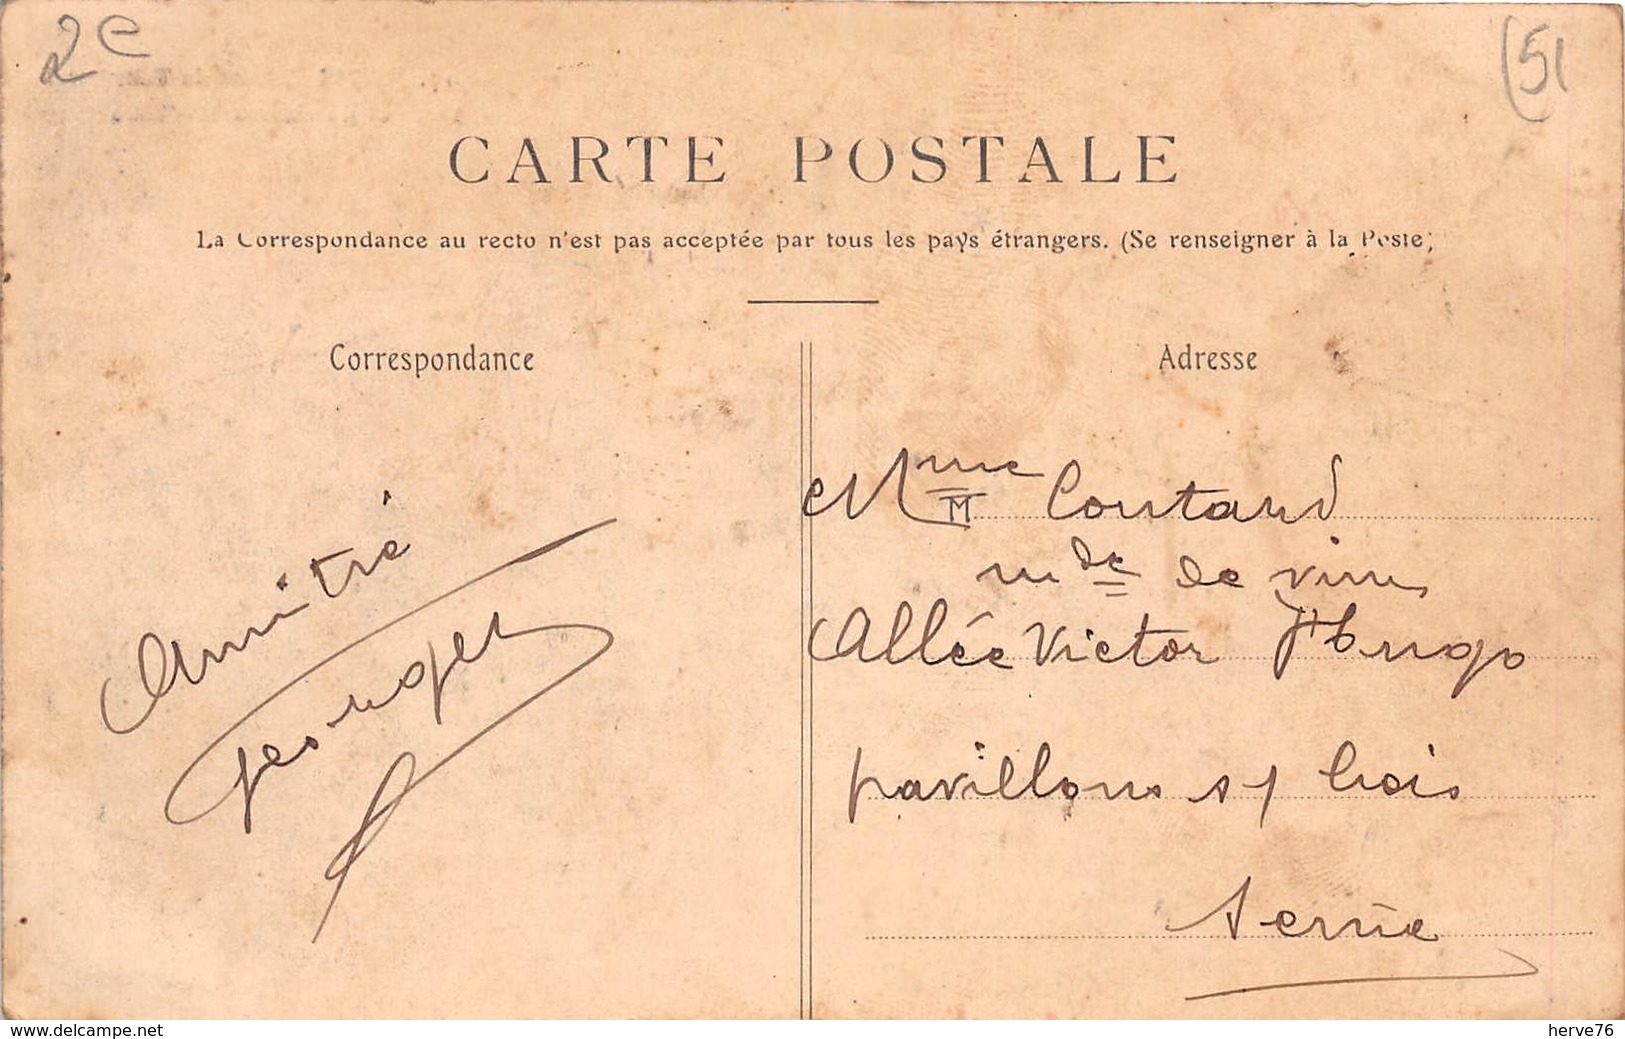 2e
(51
CARTE POSTALE
La Correspondance au recto n'est pas acceptée par tous les pays étrangers. (Se renseigner à la Poste)
Correspondance
Adresse
Amitié
Georges
Mme Coutard
M
mde de vins
Allée Victor Hugo
pavillons s/ bois
Seine
www.delcampe.net
herve76